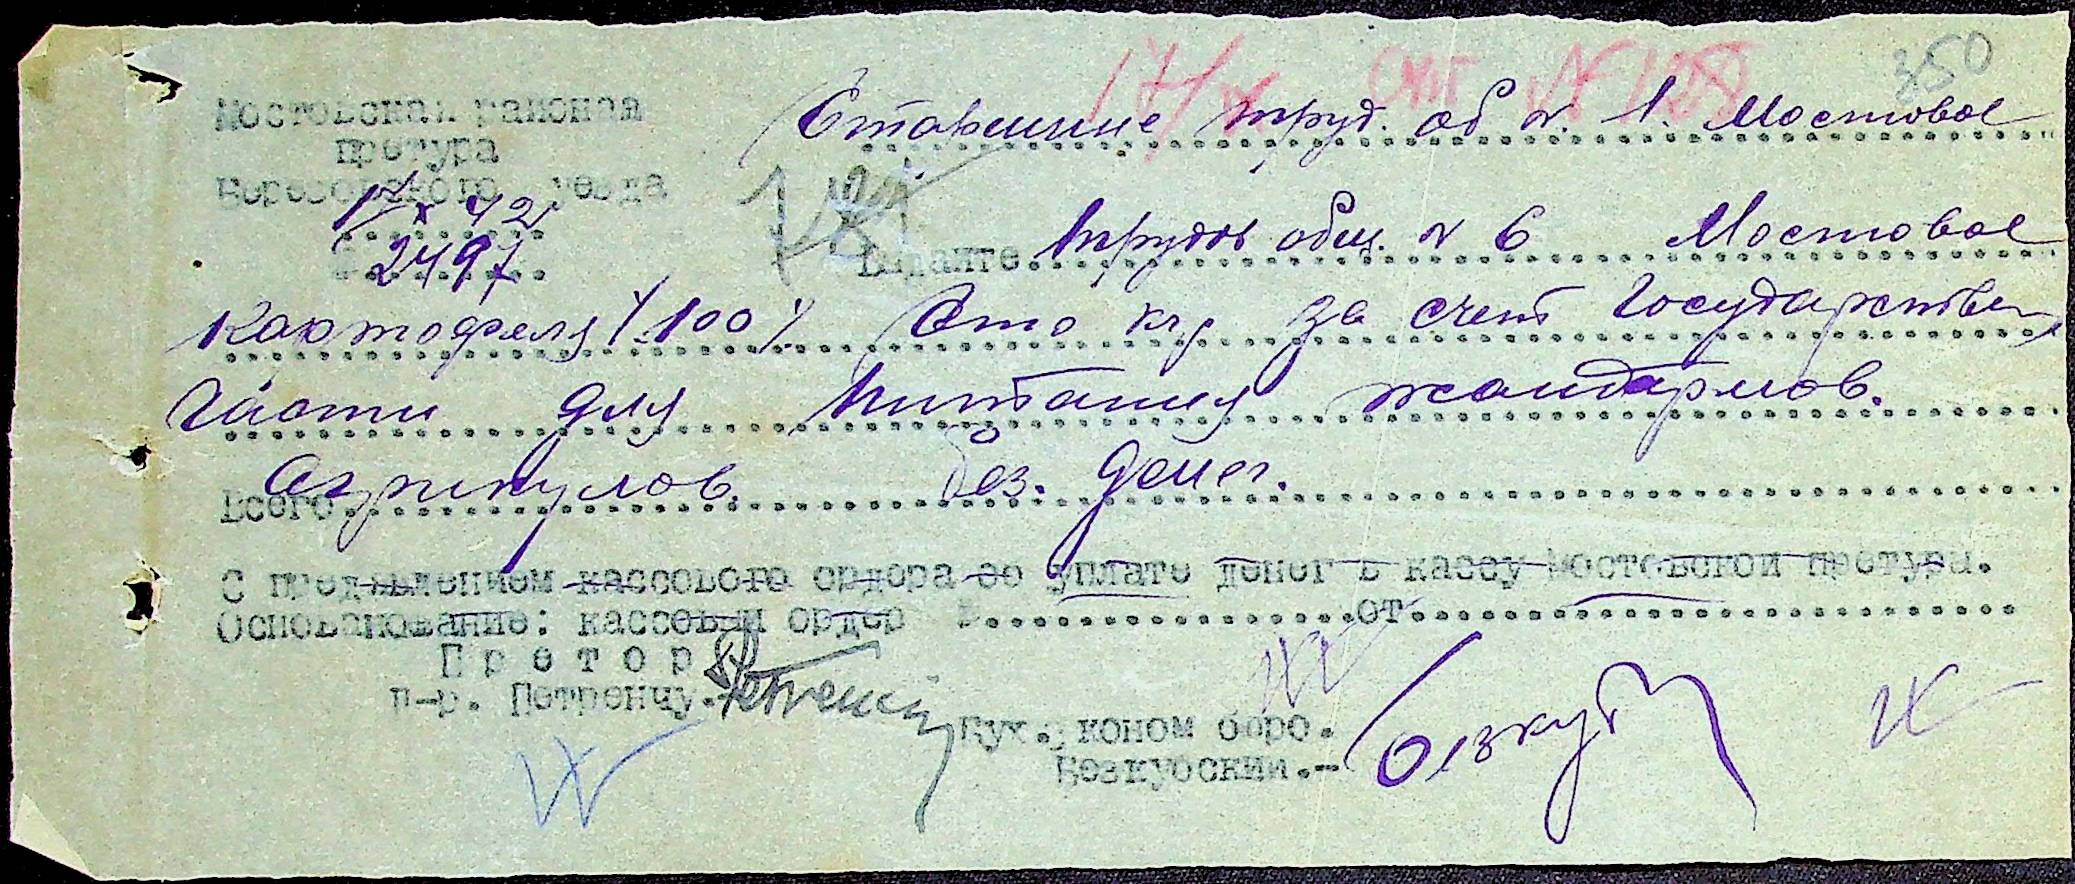 17/X опт № 128
350
Мостовская районная
претура
Березовского уезда
17 X 42
2497
Старшине труд. об №. 1. Мостовое
Выдайте трудов общ. № 6 Мостовое
картофеля /100/ Сто кгр за счет Государствен
части для питания жандармов.
Всего без. денег.
С предъявлением кассового ордера об уплате денег в кассу Мостовской претуры.
Основанование: кассовый ордер № от
Претор
п-р. Петренчу.
Рук. эконом бюро.
Безкубский.-